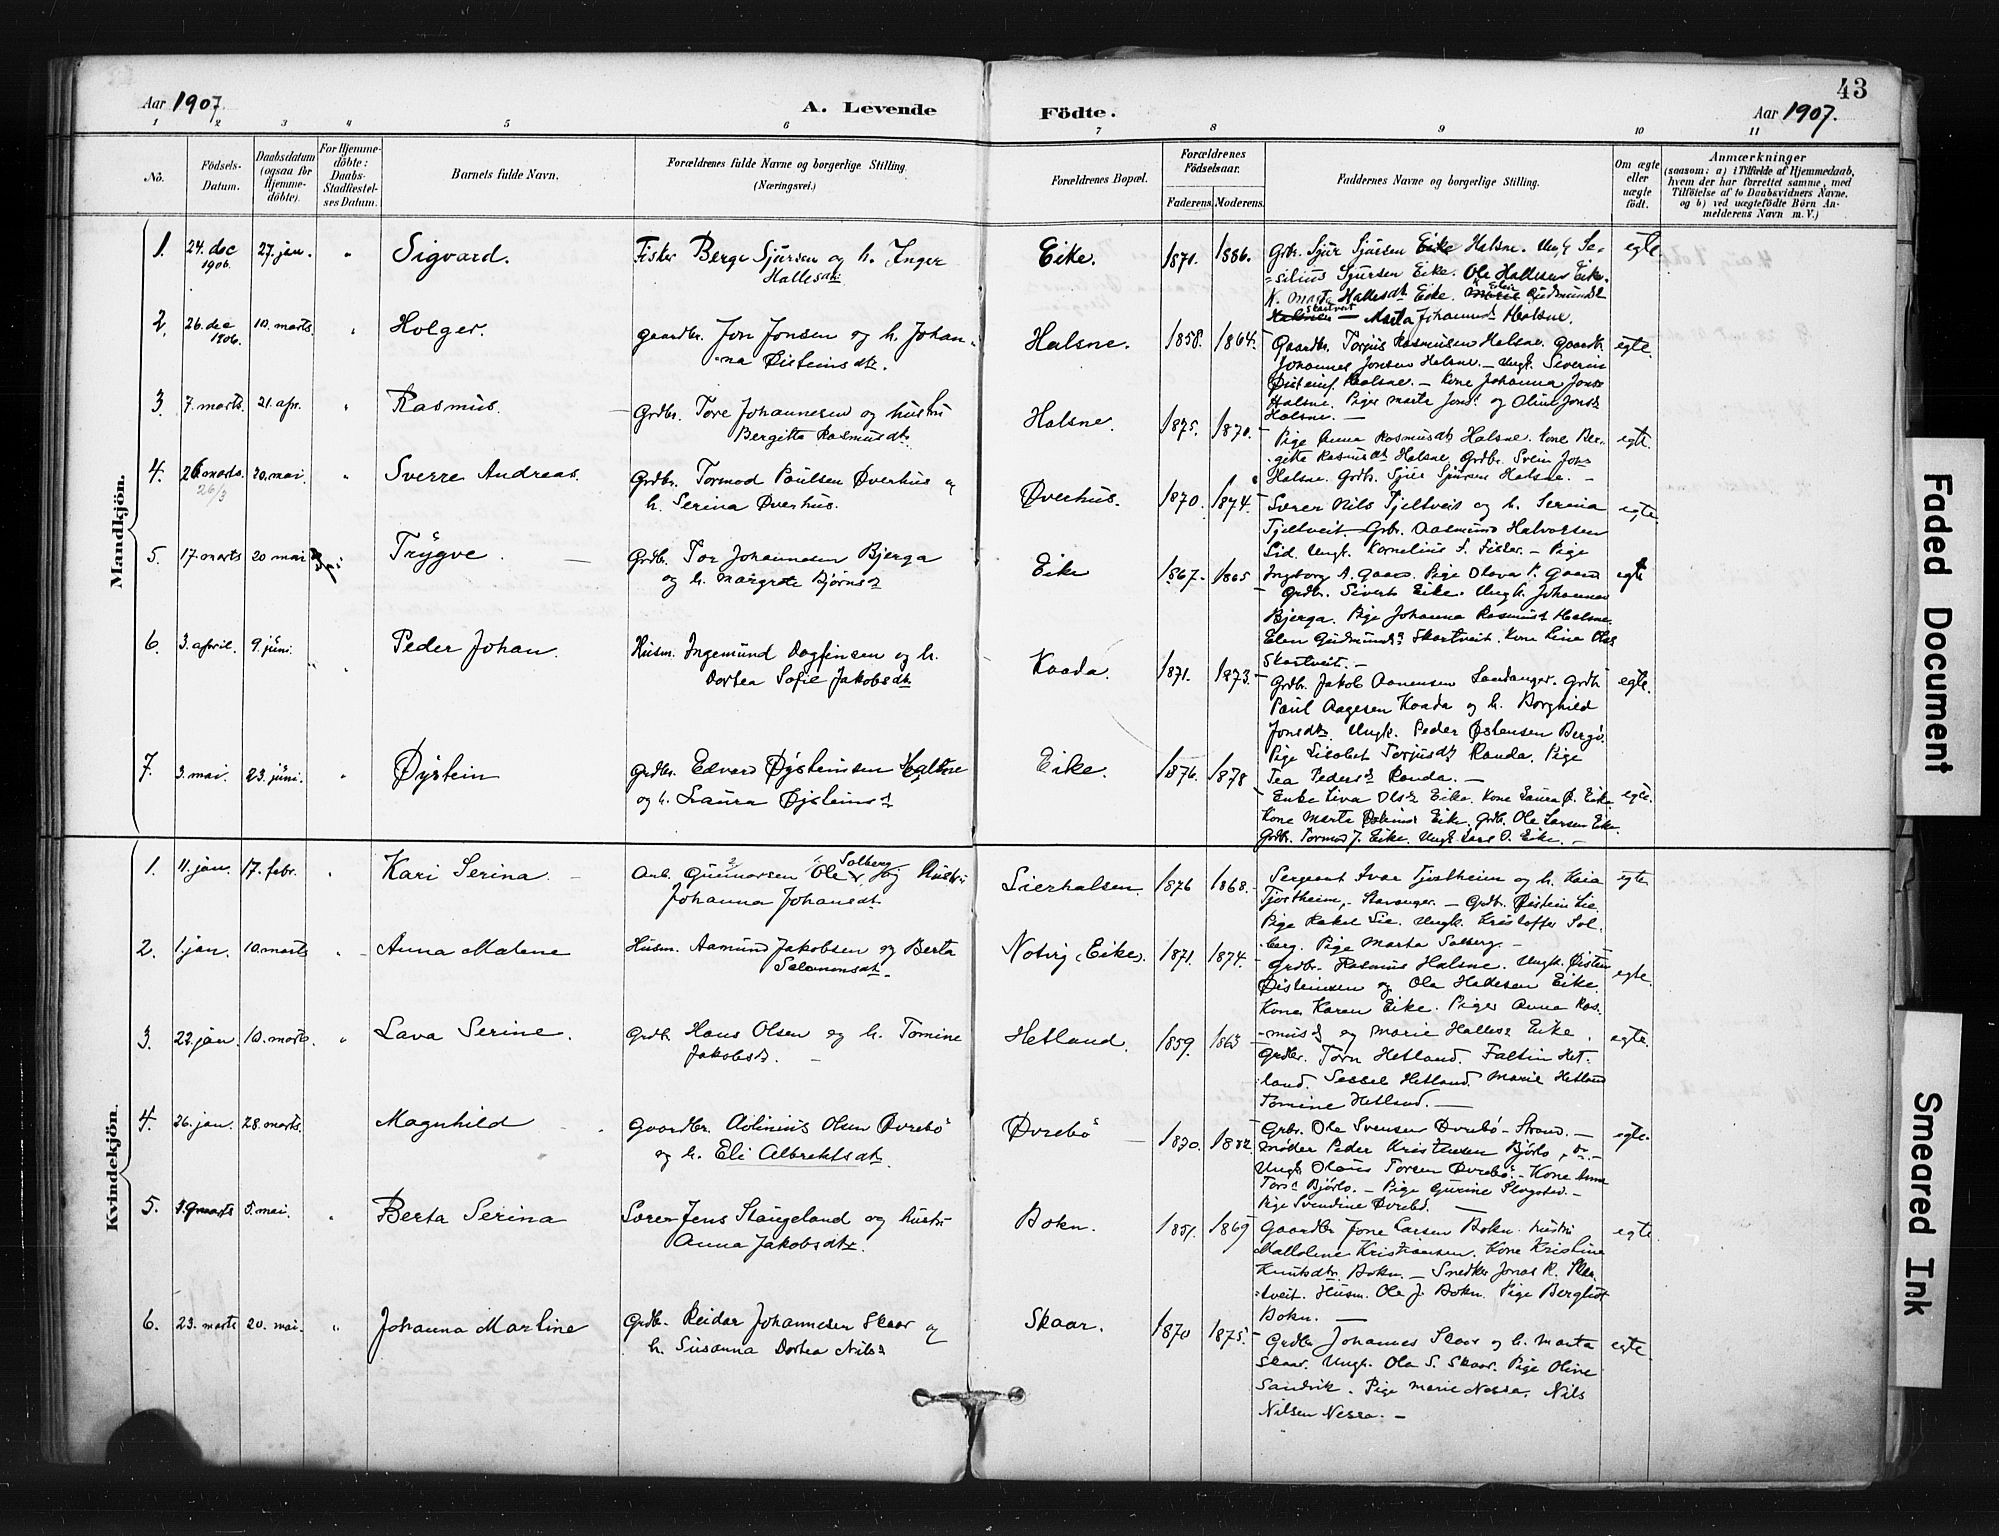 43
Aar 1907. A. Levende Födte. Aar 1907.
1 2 3 4 5 6 7 8 9 10 11
No. Födsels-Datum. Daabsdatum (ogsaa for Hjemme-döbte). For Hjemme-döbte: Daabs-Stadfæstel-ses Datum. Barnets fulde Navn. Forældrenes fulde Navne og borgerlige Stilling. (Næringsvei.) Forældrenes Bopæl. Forældrenes Födselsaar. Faderens. Moderens. Faddernes Navne og borgerlige Stilling. Om ægte eller uægte födt. Anmærkninger
(saasom: a) i Tilfælde af Hjemmedaab,
hvem der har forrettet samme, med
Tilföielse af to Daabsvidners Navne,
og b) ved uægtefödte Börn An-
melderens Navn m. V.)
Mandkjön.
1. 24. dec 1906. 27. jan. " Sigvard. Fisker Berge Sjursen og h. Inger
Hallesdtr Eike. 1871. 1886. Grbr. Sjur Sjursen Eike Halsne. Ungk. Se-
silius Sjursen Eike. Ole Hallesen Eike.
K. Marta Hallesdt Eike. Gudmundsd
Skartveit — Marta Johannesd. Halsne.
egte.
2. 26. dec 1906. 10. marts. " Holger. Gaardbr. Jon Jonsen og h. Johan-
na Øisteinsdt. Halsne. 1858. 1864. Gaardbr. Torjus Rasmusen Halsne. Gaardb.
Johannes Jonsen Halsne. — Ungk. Severin
Øisteins. Halsne. — Kone Johanna Jons
Halsne. Piger Marta Jonsd. og Oline Jonsd
Halsne. —
egte.
3. 7. marts. 21. apr. " Rasmus. Grdbr. Tore Johannesen og hustru
Bergitta Rasmusdt. Halsne. 1875. 1870. Pige Anna Rasmusdt Halsne. Kone Ber-
gitte Rasmusdt Halsne. Grdbr. Svein Jons
Halsne. Grdb. Sjur Sjursen Halsne. —
egte.
4. 26 marts. 26/3 20. mai. " Sverre Andreas. Grdbr. Tormod Paulsen Øverhus og
h. Serina Øverhus. Øverhus. 1870. 1874. Lærer Nils Tjeltveit og h. Serina
Tjeltveit — Grbr. Aasmund Halvorsen
Lid. Ungk. Kornelius S. Fister. — Pige
Ingborg A. Gaard. Pige Olava P. Gaard
egte.
5. 17. marts 20 mai Trygve. Grdb. Tor Johannesen Bjerga
og h. Margrete Bjørnsd Eike 1867. 1865 Grdbr. Sivert Eike. Ungk. Johannes
Bjerga. Pige Johanna Rasmusd Halsne
Elen Gudmundsd Skartveit. Kone Lina Ols
Skartveit. —
egte
6. 3. april. 9. juni. " Peder Johan. Husm. Ingemund Dagfinsen og h.
Dortea Sofie Jakobsdt. Kaada. 1871. 1873. Grdbr. Jakob Aanensen Sandanger. Grdb
Paul Aagesen Kaada og h. Borghild
Jonsdt. Ungk. Peder Østensen Bergö.
Pige Lisabet Torjusdt Randa. Pige
Tea Pedersd Randa. —
egte.
7. 3. mai. 23. juni. " Øystein Grdbr. Edvard Øysteinsen Halsne
og h. Laura Øjsteinsd Eike. 1876. 1878 Enke Liva Olsd Eike. Kone Laura Ø. Eike
Kone Marta Østeinsd Eike. Grdb. Ole Larsen Eike.
Grdbr. Tormod J. Eike. Ungk. Lars O. Eike. —
egte.
Kvindekjön.
1. 11. jan. 17. febr. " Kari Serina. Arb. Gunnarsen Ole Solberg og hustru
Johanna Johansdt. Lierhalsen. 1876 1868. Sergeant Ivar Tjostheim og h. Kaia
Tjostheim, — Stavanger. — Grdb. Øistein Lie.
Pige Rakel Lie. Ungk. Kristoffer Sol-
berg. Pige Marta Solberg. —
egte
2. 1. jan. 10. marts " Anna Malene Husm. Aamund Jakobsen og Berta
Salomonsdt. Notvig (Eike). 1871. 1874. Grdbr. Rasmus Halsne. Ungk. Østen
Øisteinsen og Ola Hallesen Eike.
Kone Karen Eike. Piger Anna Ras-
musd og Marie Hallesd Eike.
egte.
3. 22. jan. 10. marts. " Lava Serine. Grdb. Hans Olsen og h. Tomine
Jakobsd. Hetland. 1859. 1863 Grdbr. Torn Hetland. Faltin Het-
land. Sessel Hetland. Marie Hetland
Tomine Hetland. —
egte.
4. 26. jan. 28. marts. Magnhild Gaardbr. Adinius Olsen Øvrebö
og h. Eli Albrektsdt. Øvrebö 1870. 1882. Grbr. Ole Svensen Øvrebö - Strand. —
Peder Kristensen Björlo, —
Ungk. Olaus Torsen Øvrebö. Kone Anna
Torsd Björlo. — Pige Gurine Slogsted. —
Pige Svendine Øvrebö. —
egte.
5. marts 5. mai. " Berta Serina Lærer Jens Stangeland og hustru
Anna Jakobsdtr. Bokn. 1851. 1869 Gaardbr. Jone Larsen Bokn. hustru
Mallene Kristiansen. Kone Kristine
Knutsdtr. Bokn. — Snedker Jonas K. Skar-
tveit. Husm. Ola J. Bokn. Pige Bergliot
Bokn. —
egte.
6. 23. marts 20. mai. " Johanna Martine Grdb. Reidar Johannesen Skaar og
h. Susanna Dortea Nilsd Skaar. 1870 1875. Grdbr. Johannes Skaar og h. Marta
Skaar. Ungk. Ola S. Skaar. Pige Oline
Sandvik. Pige Marie Nessa. Nils
Nilsen Nessa. —
egte.
Faded Document
Smeared Ink